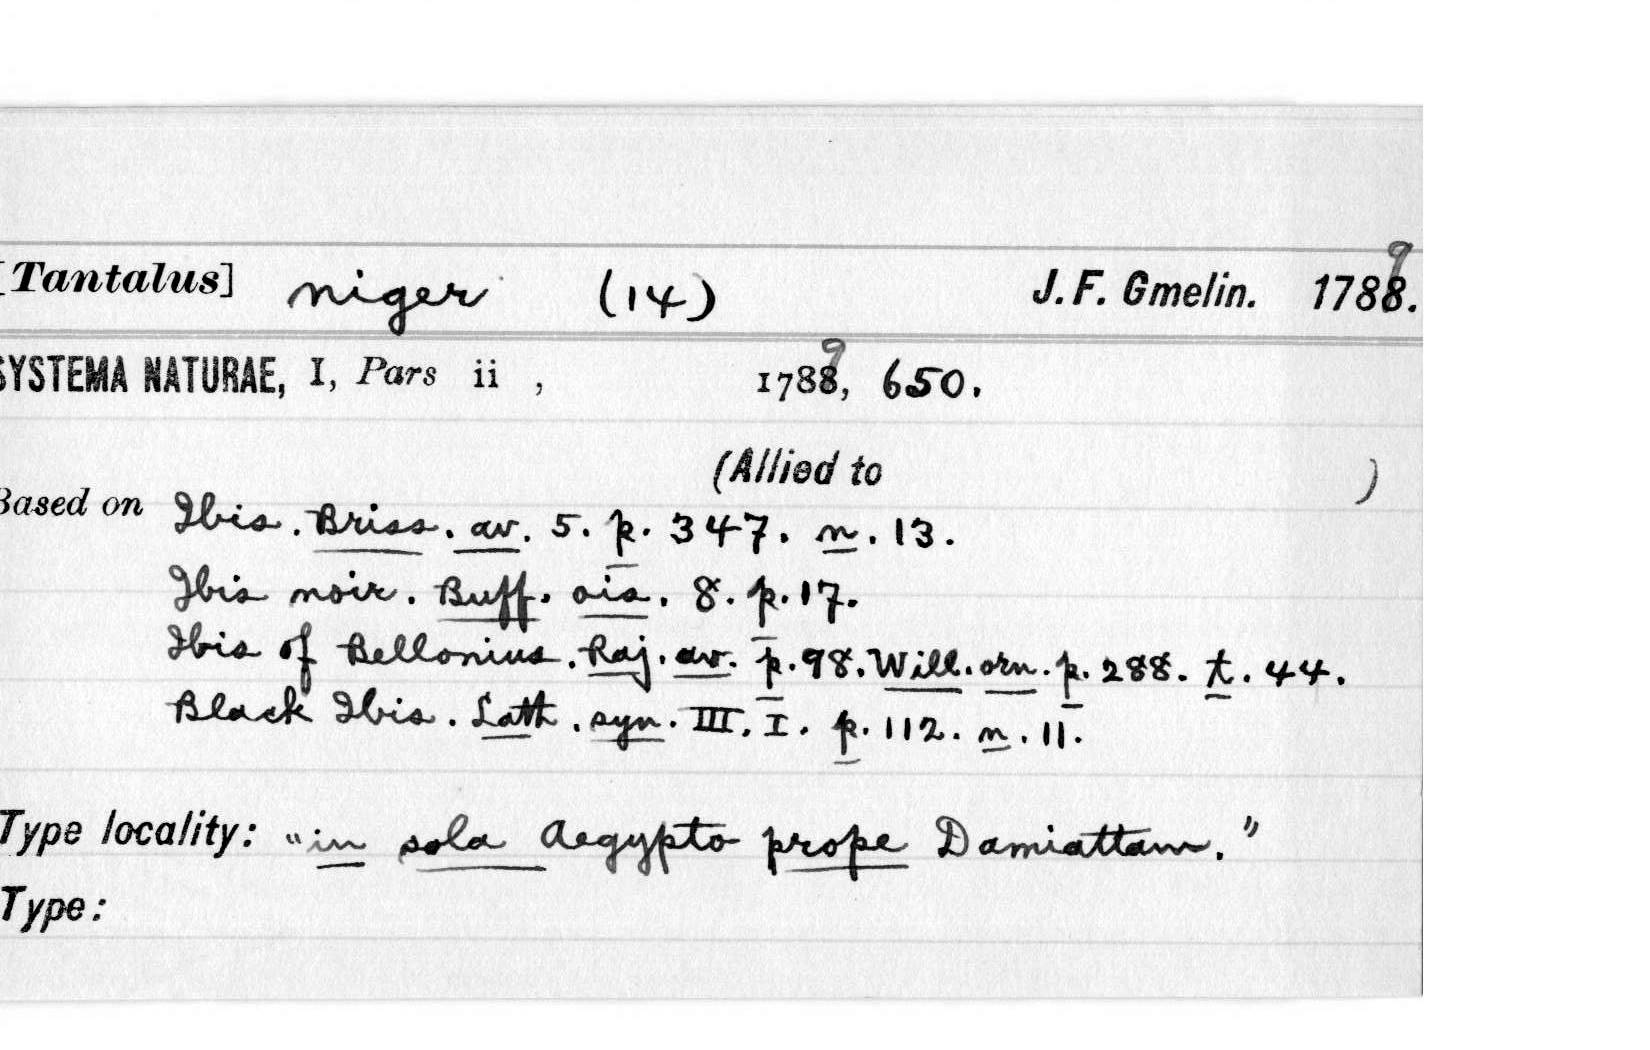 [Tantalus] niger (14) J. F. Gmelin. 1788. 9
SYSTEMA NATURAE, I, Pars ii , 1788, 9 650.
(Allied to )
Based on Ibis. Briss. av. 5. p. 347. n. 13.
Ibis noir. Buff. ois. 8. p. 17.
Ibis of Bellonius. Raj. av. p. 98. Will. orn. p. 288. t. 44.
Black Ibis. Lath. syn. III. I. p. 112. n. 11.
Type locality: "in sola Aegypto prope Damiattam."
Type: